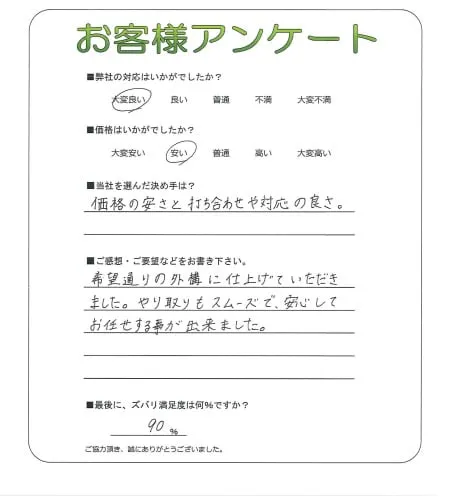 お客様アンケート
■弊社の対応はいかがでしたか?
大変良い 良い 普通 不満 大変不満
■価格はいかがでしたか?
大変安い 安い 普通 高い 大変高い
■当社を選んだ決め手は?
価格の安さと打ち合わせや対応の良さ。
■ご感想・ご要望などをお書き下さい。
希望通りの外構に仕上げていただき
ました。やり取りもスムーズで、安心して
お任せする事が出来ました。
■最後に、ズバリ満足度は何%ですか?
90 %
ご協力頂き、誠にありがとうございました。